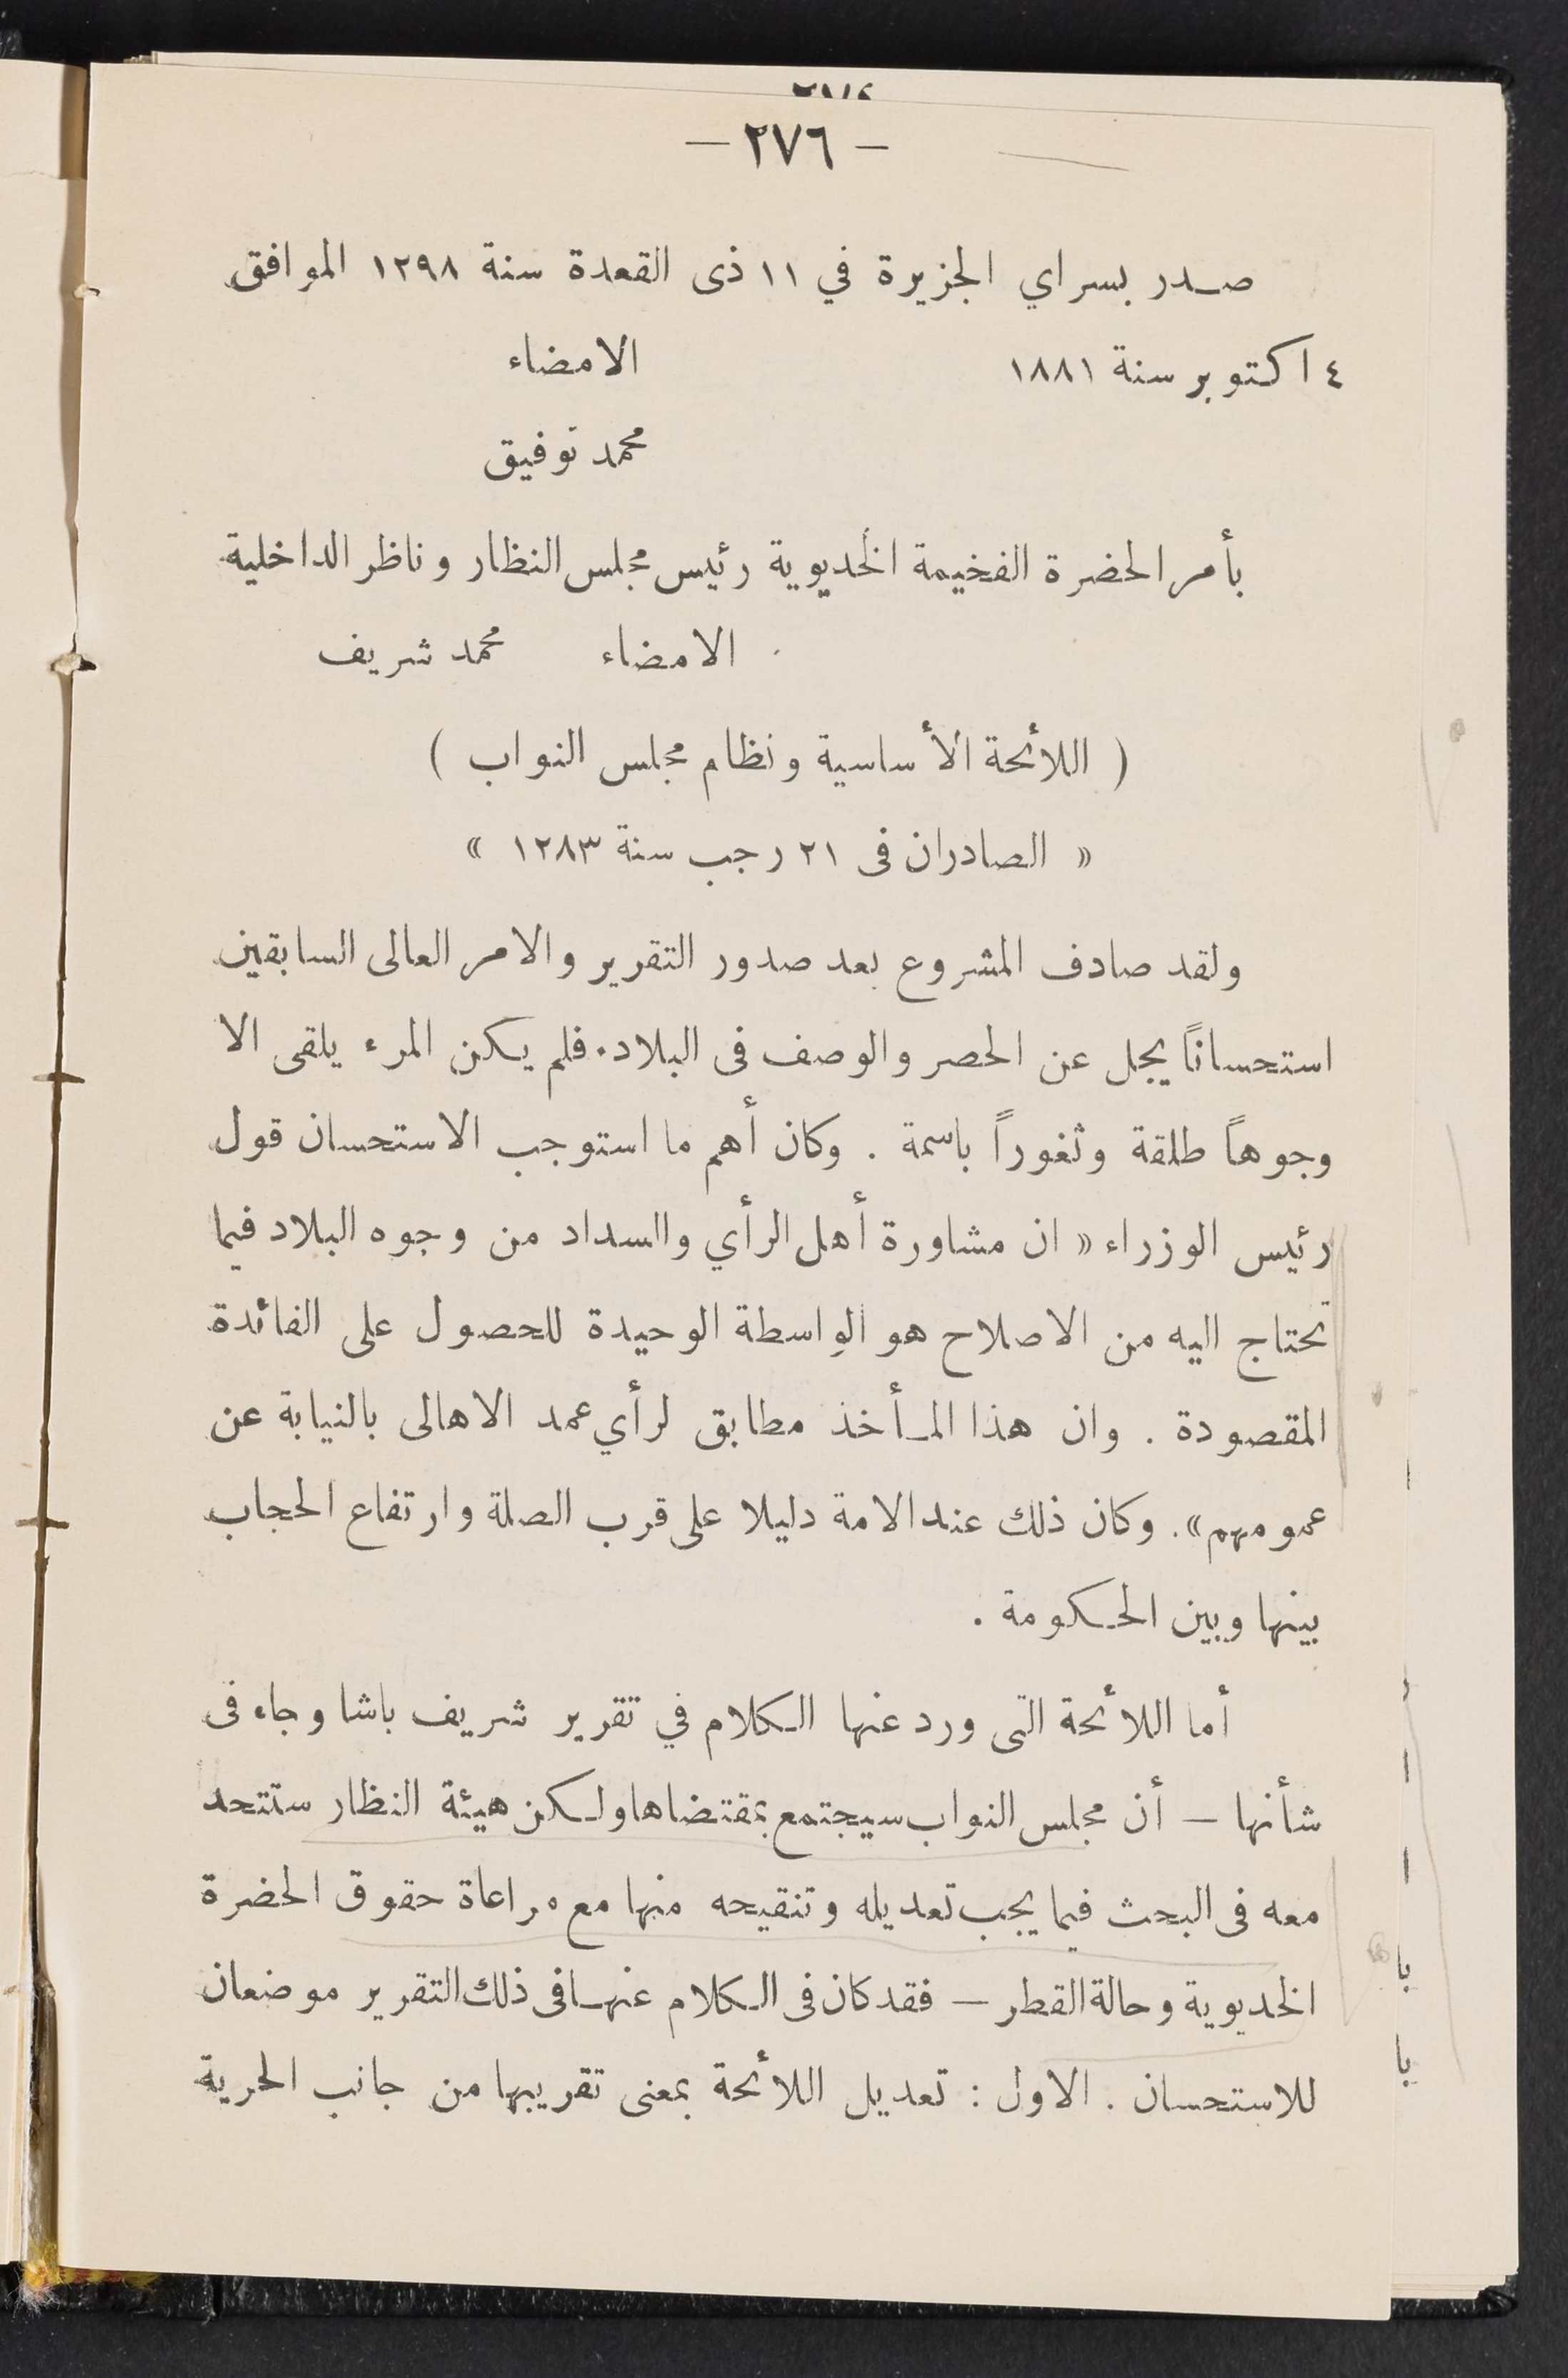 — ٢٧٦ —
صدر بسراي الجزيرة في ١١ ذى القعدة سنة ١٢٩٨ الموافق
٤ اكتوبر سنة ١٨٨١ الامضاء
محمد توفيق
بأمر الحضرة الفخيمة الخديوية رئيس مجلس النظار وناظر الداخلية
الامضاء محمد شريف
( اللائحة الأساسية ونظام مجلس النواب )
« الصادران فى ٢١ رجب سنة ١٢٨٣ »
ولقد صادف المشروع بعد صدور التقرير والامر العالى السابقين
استحساناً يجل عن الحصر والوصف فى البلاد. فلم يكن المرء يلقى الا
وجوهاً طلقة وثغوراً باسمة . وكان أهم ما استوجب الاستحسان قول
رئيس الوزراء « ان مشاورة أهل الرأي والسداد من وجوه البلاد فيما
تحتاج اليه من الاصلاح هو الواسطة الوحيدة للحصول على الفائدة
المقصودة . وان هذا المأخذ مطابق لرأي عمد الاهالى بالنيابة عن
عمومهم». وكان ذلك عند الامة دليلا على قرب الصلة وارتفاع الحجاب
بينها وبين الحكومة .
أما اللائحة التى ورد عنها الكلام في تقرير شريف باشا وجاء فى
شأنها — أن مجلس النواب سيجتمع بمقتضاها ولكن هيئة النظار ستتحد
معه فى البحث فيما يجب تعديله وتنقيحه منها مع مراعاة حقوق الحضرة
الخديوية وحالة القطر — فقد كان فى الكلام عنها فى ذلك التقرير موضعان
للاستحسان . الاول : تعديل اللائحة بمعنى تقريبها من جانب الحرية